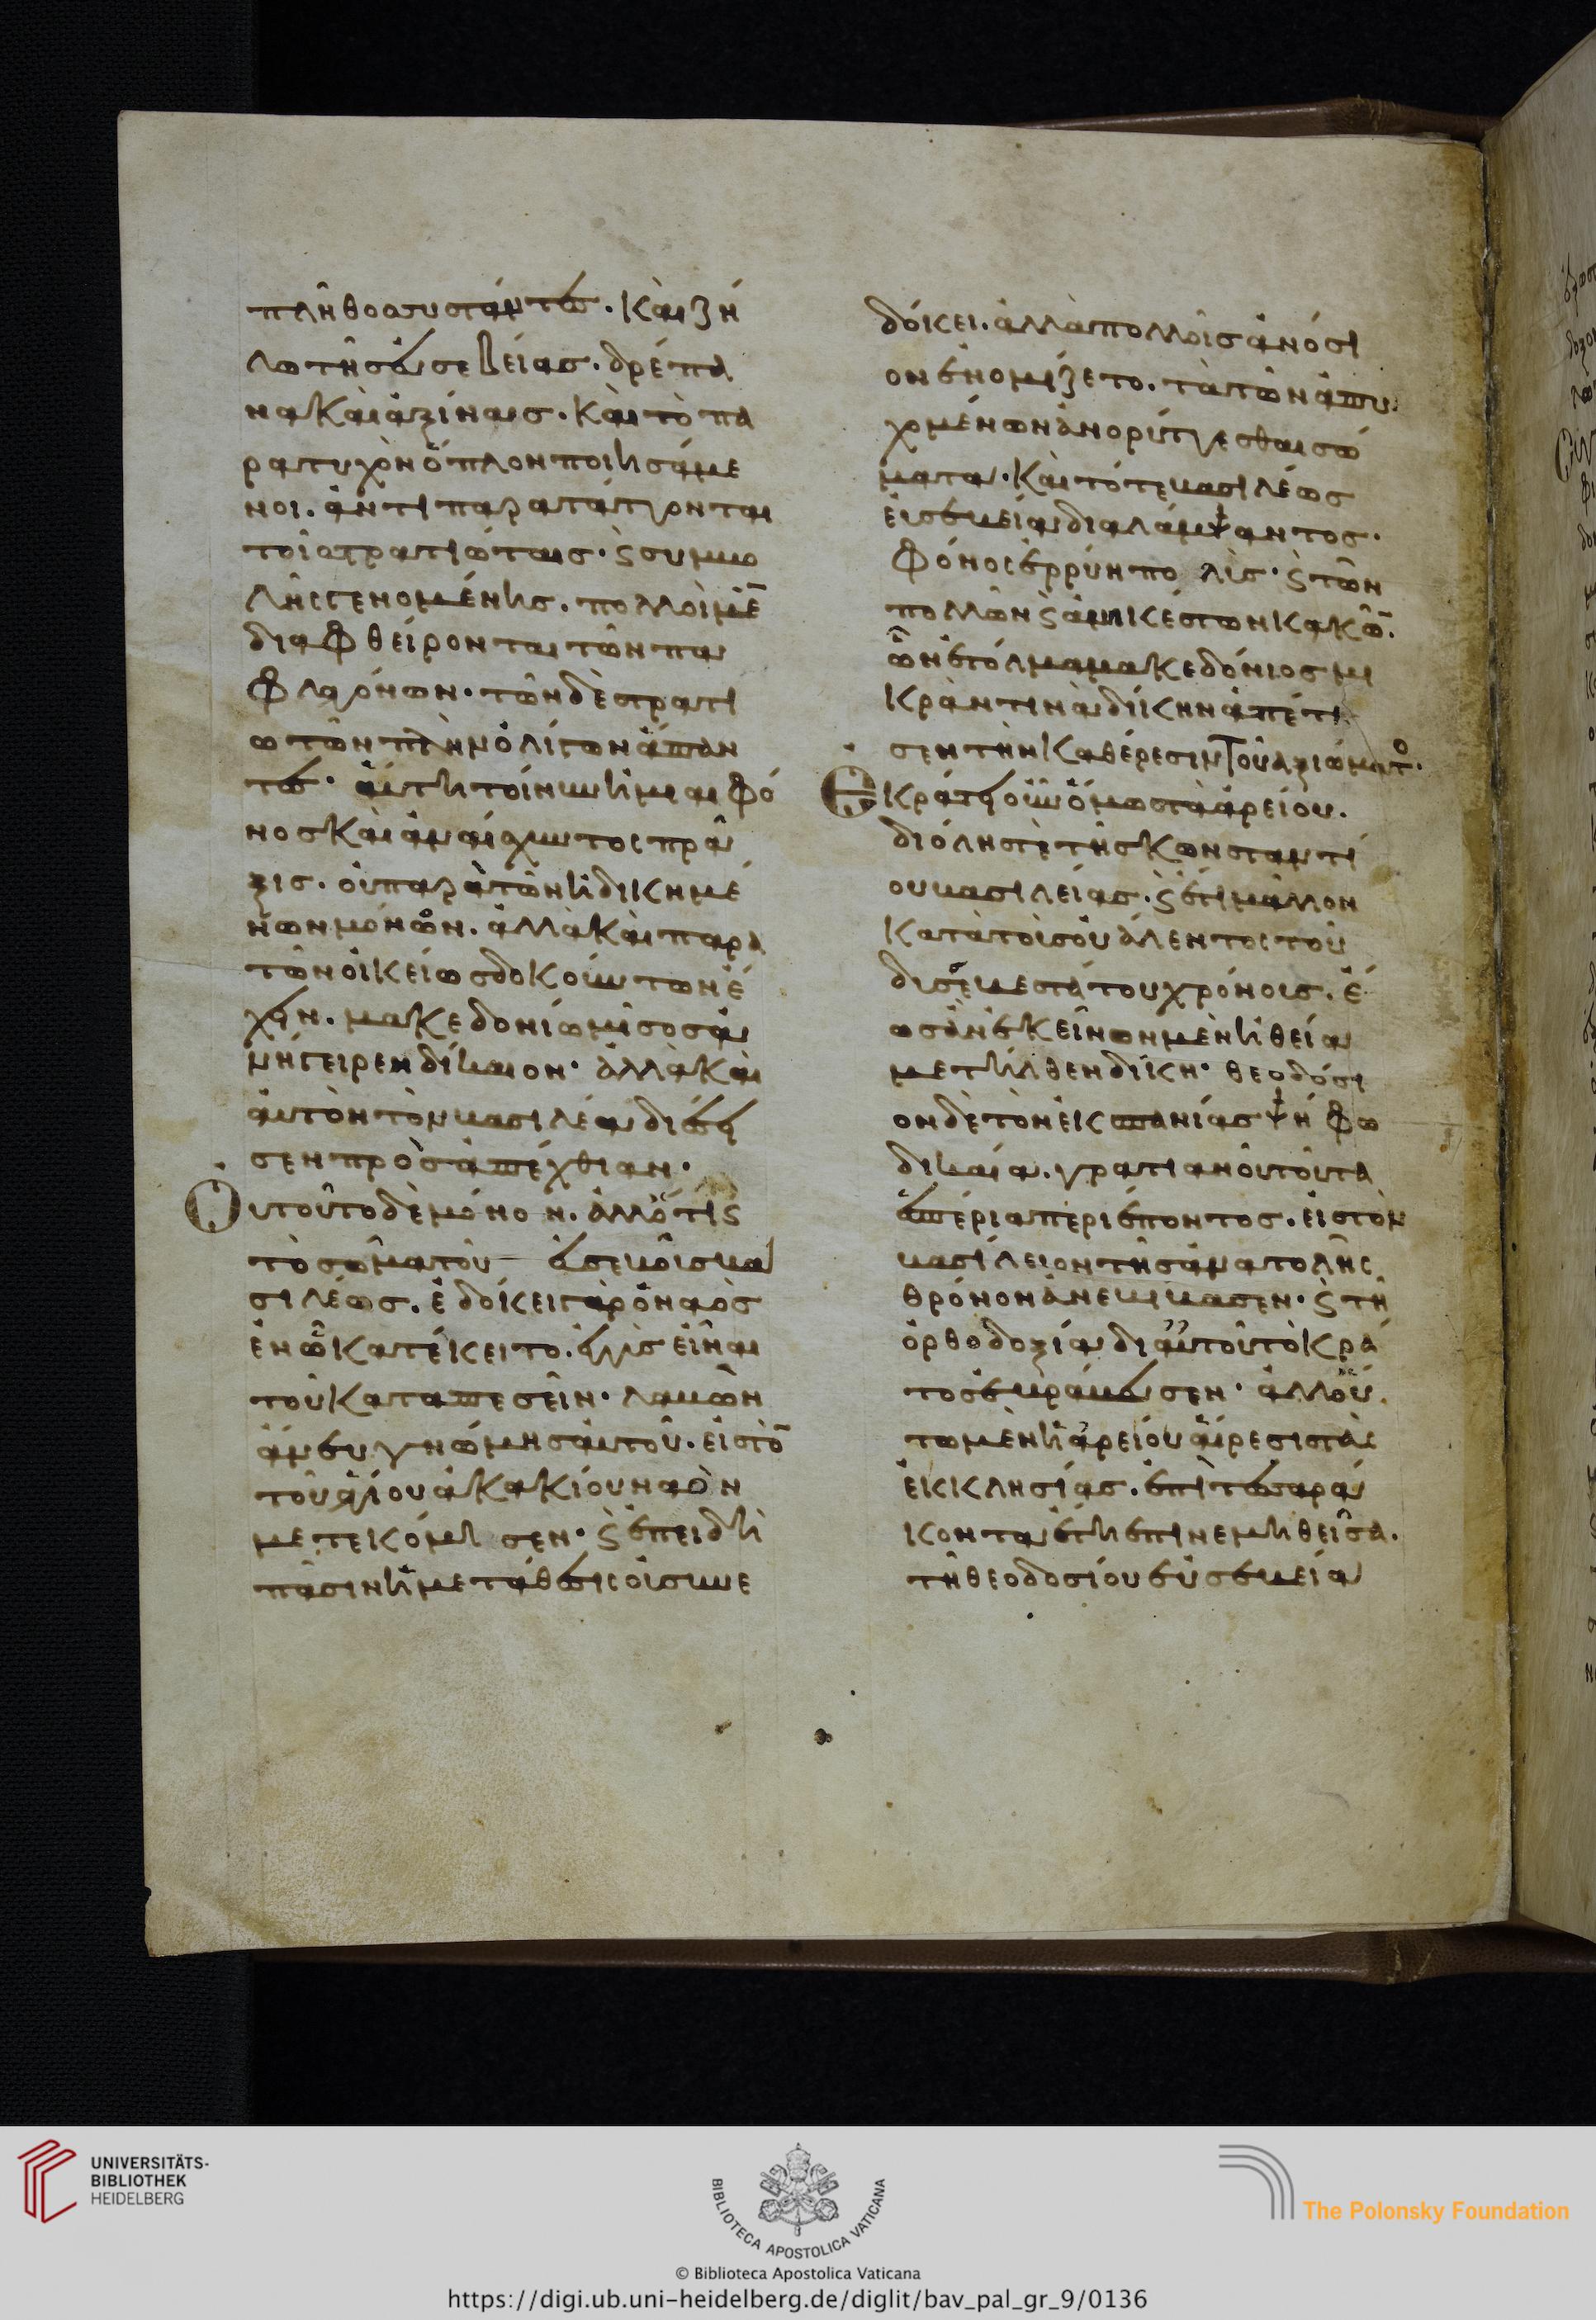 πλῆθος συστάντες. καὶ ζη
λωτῆς εὐσεβείας. δρέπα
να καὶ ἀξίναις. καὶ τὸ πα
ρατυχὸν ὅπλον ποιησάμε
νοι. ἀντιπαρατάττονται
τοῖς στρατιώταις. ϗ συμβο
λῆς γενομένης. πολλοὶ μὲ̅
διαφθείρονται τῶν πα
φλαγόνων. τῶν δὲ στρατι
ωτῶν πλὴν ὀλίγων ἅπαν
τες. αὕτη τοίνυν ἡ μιαιφό
νος καὶ ἀναίσχυντος πρᾶ
ξις. οὐ παρὰ τῶν ἠδικημέ
νων μόνον. ἀλλὰ καὶ παρα
τῶν οἰκείως δοκούντων ἔ
χειν. μακεδονίω μῖσος ἀ
νήγειρεν δίκαιον. ἀλλὰ καὶ
αὐτὸν τὸν βασιλέα διέθη
σεν πρὸς ἀπέχθιαν.
Οὐ τοῦτο δὲ μόνον. ἀλλ' ὅτι ϗ
τὸ σῶμα τοῦ εὐσεβοῦς βα
σιλέως. ἐδόκει γὰρ ὁ ναὸς
ἐν ὧ κατέκειτο. ἐγγὺς εἶναι
τοῦ καταπεσεῖν. λαβὼν
ἄνευ γνώμης αὐτοῦ. εἰς τὸ̅
τοῦ ἁγίου ἀκακίου ναὸν
μετεκόμισεν. ϗ ἐπειδὴ
πᾶσιν ἡ μετάθεσις οὐ συνε
δόκει. ἀλλὰ πολλοῖς ἀνόσι
ον ἐνομίζετο. τὰ τῶν ἀπυ
χομένων ἀνορύττεσθαι σώ
ματα. καὶ τότε βασιλέως
εἰς εὐμενείαν διαλάμψαντος.
φόνος ἐρρύη πολύς. ϗ τῶν
πολλῶν ϗ ἀνηκέστων κακῶ̅.
ὧν ἐτόλμα μακεδόνιος μι
κρὰν τινὰ δίκην ἀπέτι
σεν τὴν καθέρεσιν τοῦ ἀξιώματο.
Ἐκράτει οὖν ὅμως τὰ ἀρείου.
δι' ὅλης τε τῆς κωνσταντί
ου βασιλείας. ϗ ἔτι μᾶλλον
κατὰ τοὺς οὐάλεντος τοῦ
δυσσεβεστάτου χρόνους. ἕ
ως ἂν ἐκεῖνον μὲν ἡ θεία
μετῆλθεν δίκη. θεοδόσι
ον δὲ τὸν ἐκ σπανίας ψήφω
δικαία. γρατιανοῦ τοῦ τὰ
ἑσπέρια περιέποντος. εἰς τὸν
βασίλειον τῆς ἀνατολῆς
θρόνον ἀνεβίβασεν. ϗ τῆ
ὀρθοδοξία δι' αὐτοῦ τὸ κρά
τος ἐβράβευσεν. ἀλλ' οὔ
τω μὲν ἡ ἀρείου αἵρεσις τὰς
ἐκκλησίας. ἐπὶ τεσσαρά
κοντα ἔτη ἐπινεμηθεῖσα.
τῆ θεοδοσίου εὐσεβεία
UNIVERSITÄTS-
BIBLIOTHEK
HEIDELBERG
BIBLIOTECA APOSTOLICA VATICANA
The Polonsky Foundation
© Biblioteca Apostolica Vaticana
https://digi.ub.uni-heidelberg.de/diglit/bav_pal_gr_9/0136